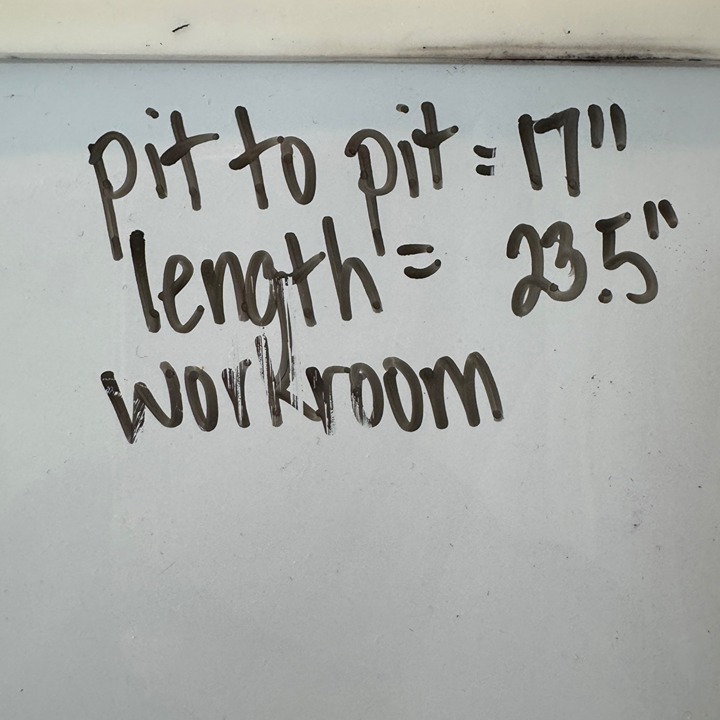 pit to pit = 17"
length = 23.5"
workroom